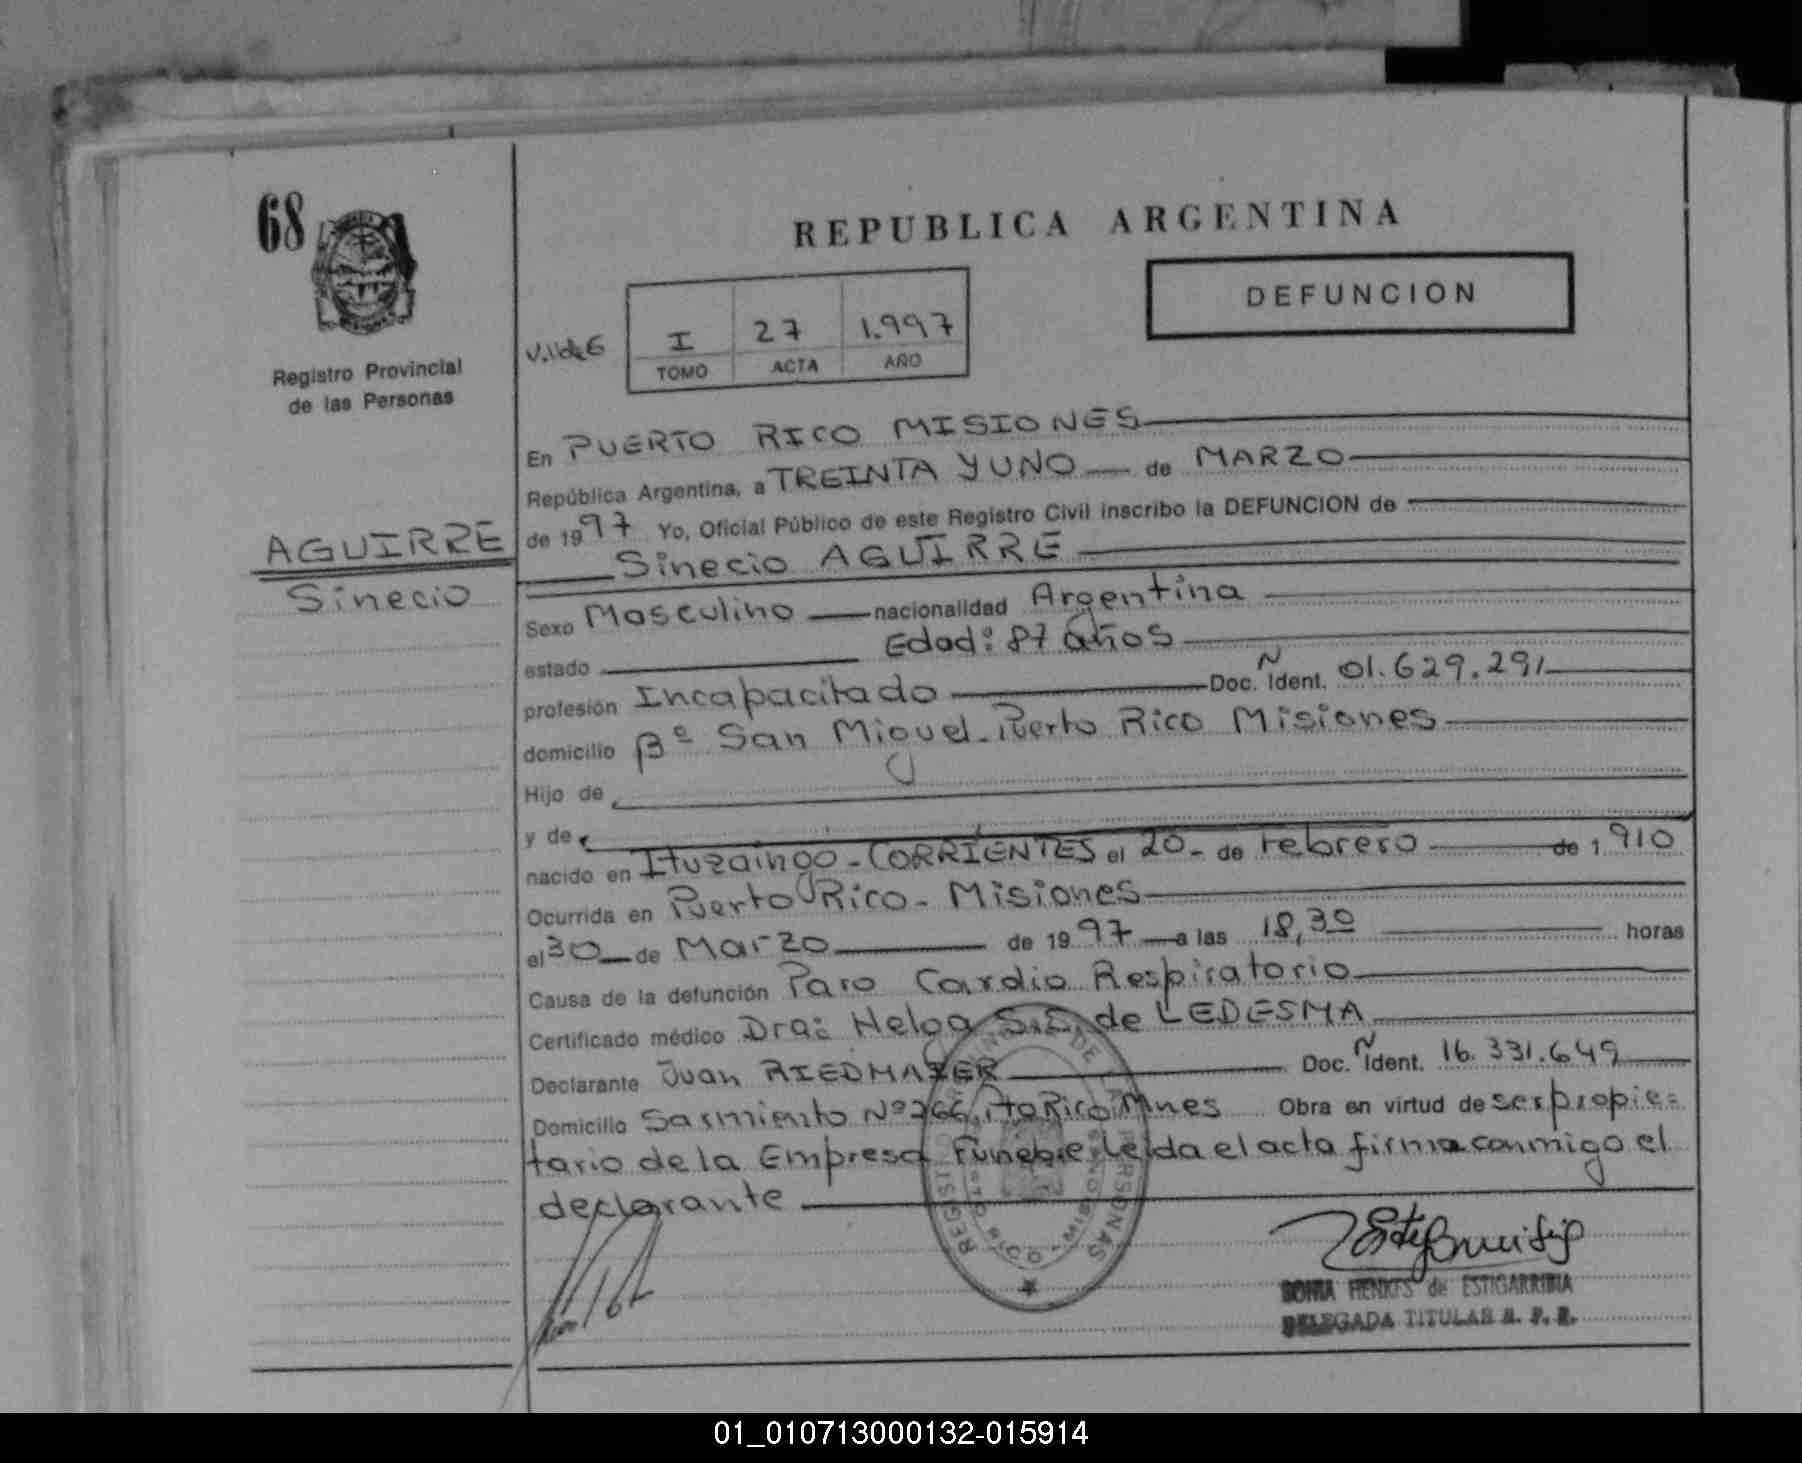 68
Registro Provincial
de las Personas
AGUIRRE
Sinecio
REPUBLICA ARGENTINA
DEFUNCION
I 27 1.997
TOMO ACTA AÑO
En PUERTO RICO MISIONES
República Argentina, a TREINTA Y UNO de MARZO
de 1997 Yo, Oficial Público de este Registro Civil inscribo la DEFUNCION de
Sinecio AGUIRRE
Sexo Masculino nacionalidad Argentina
estado Edad: 87 años
profesión Incapacitado Doc. Ñ Ident. 01.629.291
domicilio Bº San Miguel - Puerto Rico Misiones
Hijo de
y de
nacido en Ituzaingo - CORRIENTES el 20 - de Febrero de 1.910
Ocurrida en Puerto Rico - Misiones
el 30 de Marzo de 1997 a las 18,30 horas
Causa de la defunción Paro Cardio Respiratorio
Certificado médico Dra: Helga S.S. de LEDESMA
Declarante Juan RIEDMAIER Doc. Ñ Ident. 16.331.649
Domicilio Sarmiento Nº 266, Pto Rico Mnes Obra en virtud de ser propie=
tario de la Empresa Funebre. Leida el acta firma conmigo el
declarante
SONIA HENKES de ESTIGARRIBIA
DELEGADA TITULAR R. P. P.
01_010713000132-015914